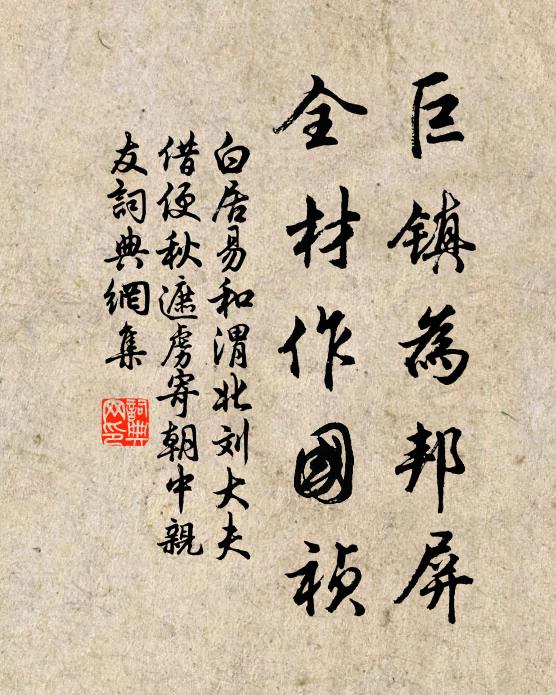 巨镇為邦屏
全材作國禎
白居易和渭北刘大夫
借便秋遮虏寄朝中親
友詞典網集
詞典
网印